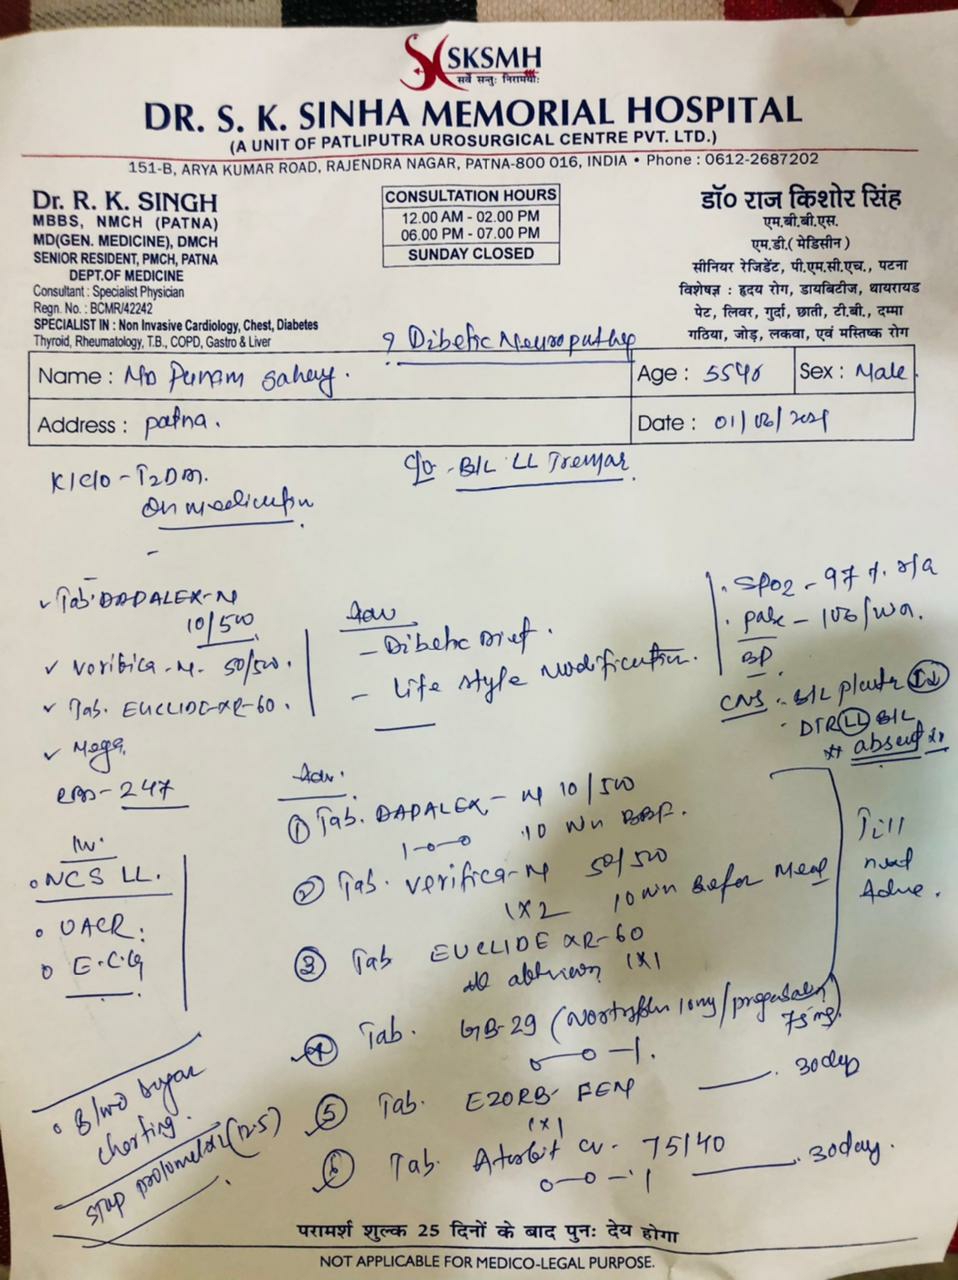 SKSMH
सर्वे सन्तुः निरामयाः
DR. S. K. SINHA MEMORIAL HOSPITAL
(A UNIT OF PATLIPUTRA UROSURGICAL CENTRE PVT. LTD.)
151-B, ARYA KUMAR ROAD, RAJENDRA NAGAR, PATNA-800 016, INDIA • Phone : 0612-2687202
Dr. R. K. SINGH
MBBS, NMCH (PATNA)
MD(GEN. MEDICINE), DMCH
SENIOR RESIDENT, PMCH, PATNA
DEPT.OF MEDICINE
Consultant : Specialist Physician
Regn. No. : BCMR/42242
SPECIALIST IN : Non Invasive Cardiology, Chest, Diabetes
Thyroid, Rheumatology, T.B., COPD, Gastro & Liver
CONSULTATION HOURS
12.00 AM - 02.00 PM
06.00 PM - 07.00 PM
SUNDAY CLOSED
डॉ० राज किशोर सिंह
एम.बी.बी.एस.
एम.डी.( मेडिसीन )
सीनियर रेजिडेंट, पी.एम.सी.एच., पटना
विशेषज्ञ : हृदय रोग, डायबिटीज, थायरायड
पेट, लिवर, गुर्दा, छाती, टी.बी., दम्मा
गठिया, जोड़, लकवा, एवं मस्तिष्क रोग
? Dibetic Neuropathy
Name : Md Punam
Age : 55 Sex : Male
Address : patna.
Date : 01/06/2021
K/C/O - T2DM.
On medication
C/O - B/L LL Tremar
Tab. DADALEX-M
10/500
verifica-M- 50/500.
Tab. EUCLIDE-XR-60.
Mega
RBS- 247
Adv
- Dibetic Diet.
- Life style modification.
SPO2 - 97 %. r/a
pulse - 106/
BP
CNS - B/L planter
DTR LL B/L
** absent **
Inv.
NCS LL.
UACR.
E.C.G
Adv.
① Tab. DADALEX - M 10/500
1-0-0 10 BBF.
② Tab. verifica-M 50/500
1X2 10 Before Meal
③ Tab EUCLIDE XR-60
1X1
④ Tab. GB-29 (Nortryptlin 10mg/pregabalin
75mg)
0-0-1.
⑤ Tab. EZORB- FEM 30day
1X1
⑥ Tab. Atorbit CV- 75/40 30day.
0-0-1
Till
next
Advice.
sugar
charting.
stop prolomet XL (12.5)
परामर्श शुल्क 25 दिनों के बाद पुनः देय होगा
NOT APPLICABLE FOR MEDICO-LEGAL PURPOSE.